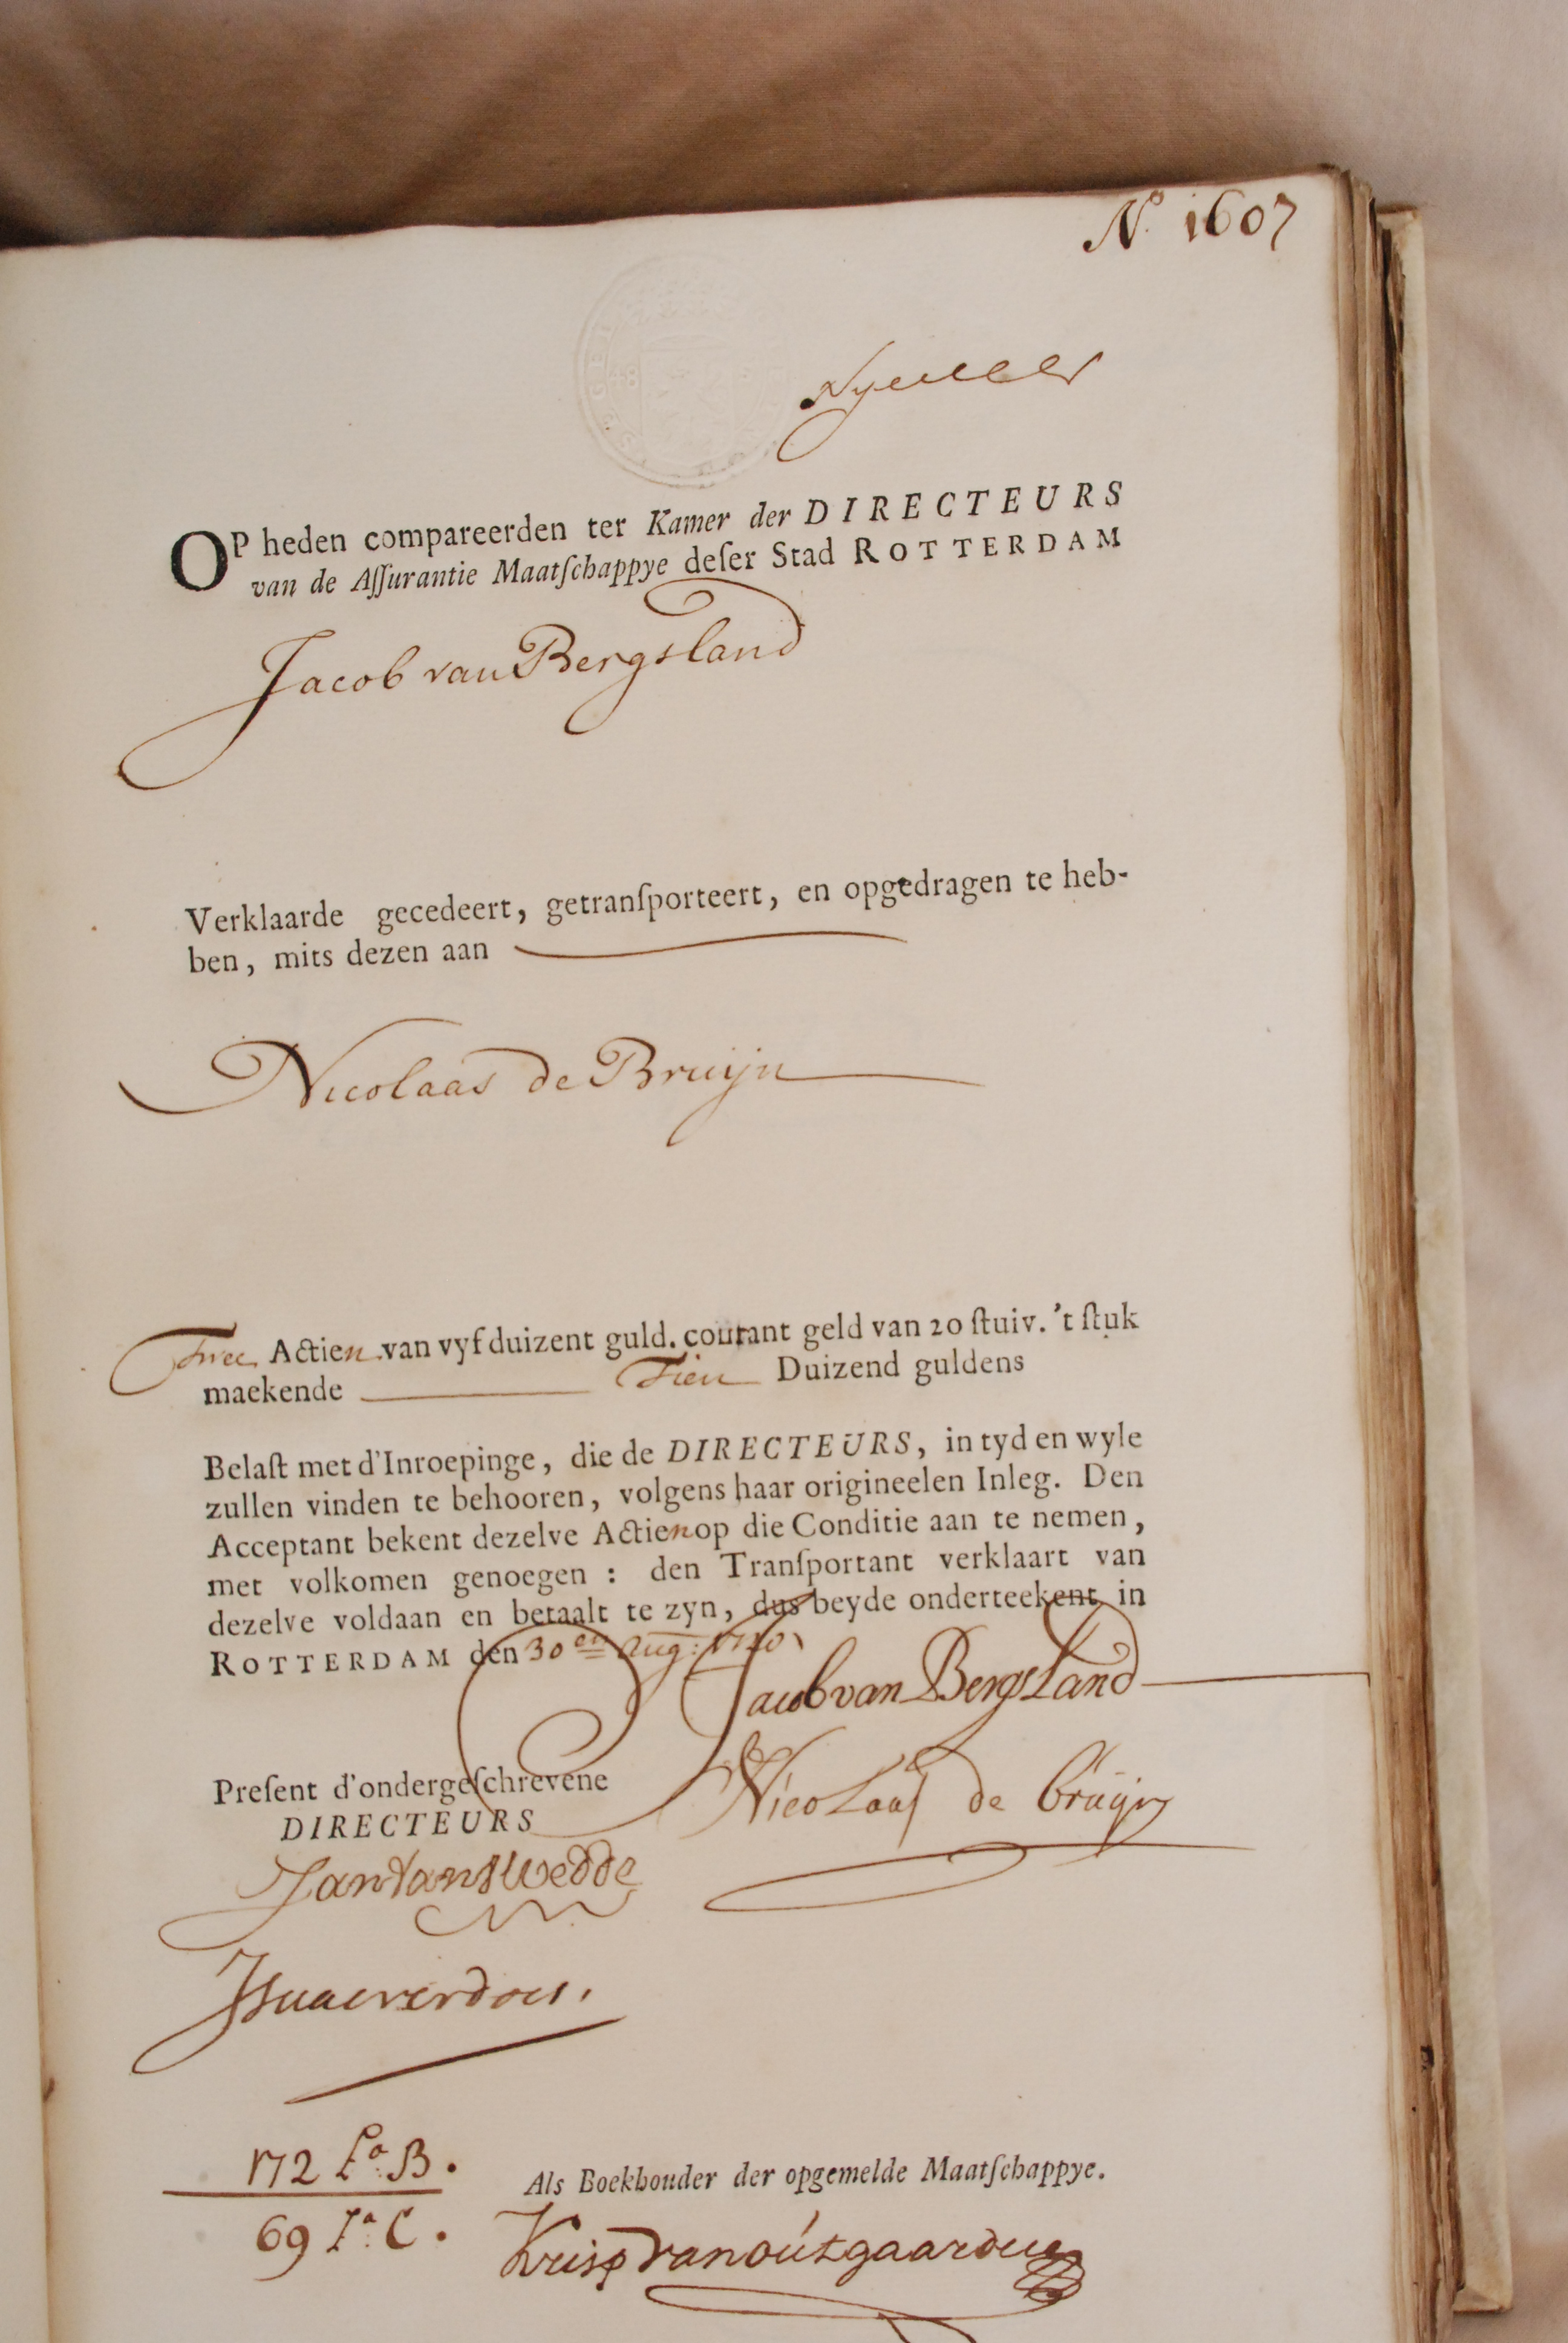 No. 1607
OP heden compareerden ter Kamer der DIRECTEURS
van de Aſſurantie Maatſchappye deſer Stad ROTTERDAM
Jacob van Bergsland
Verklaarde gecedeert, getranſporteert, en opgedragen te heb-
ben, mits dezen aan
Nicolaas de Bruijn
Twee Actien van vyf duizent guld. courant geld van 20 ſtuiv. 't ſtuk
maekende Tien Duizend guldens
Belaſt met d'Inroepinge, die de DIRECTEURS, in tyd en wyle
zullen vinden te behooren, volgens haar origineelen Inleg. Den
Acceptant bekent dezelve Actien op die Conditie aan te nemen,
met volkomen genoegen : den Tranſportant verklaart van
dezelve voldaan en betaalt te zyn, dus beyde onderteekent in
ROTTERDAM den 30en Aug: 1720
Jacob van Bergsland
Preſent d'ondergeſchrevene
Nicolaas de Bruijn
DIRECTEURS
172 Lа B.
Als Boekhouder der opgemelde Maatſchappye.
69 La C.